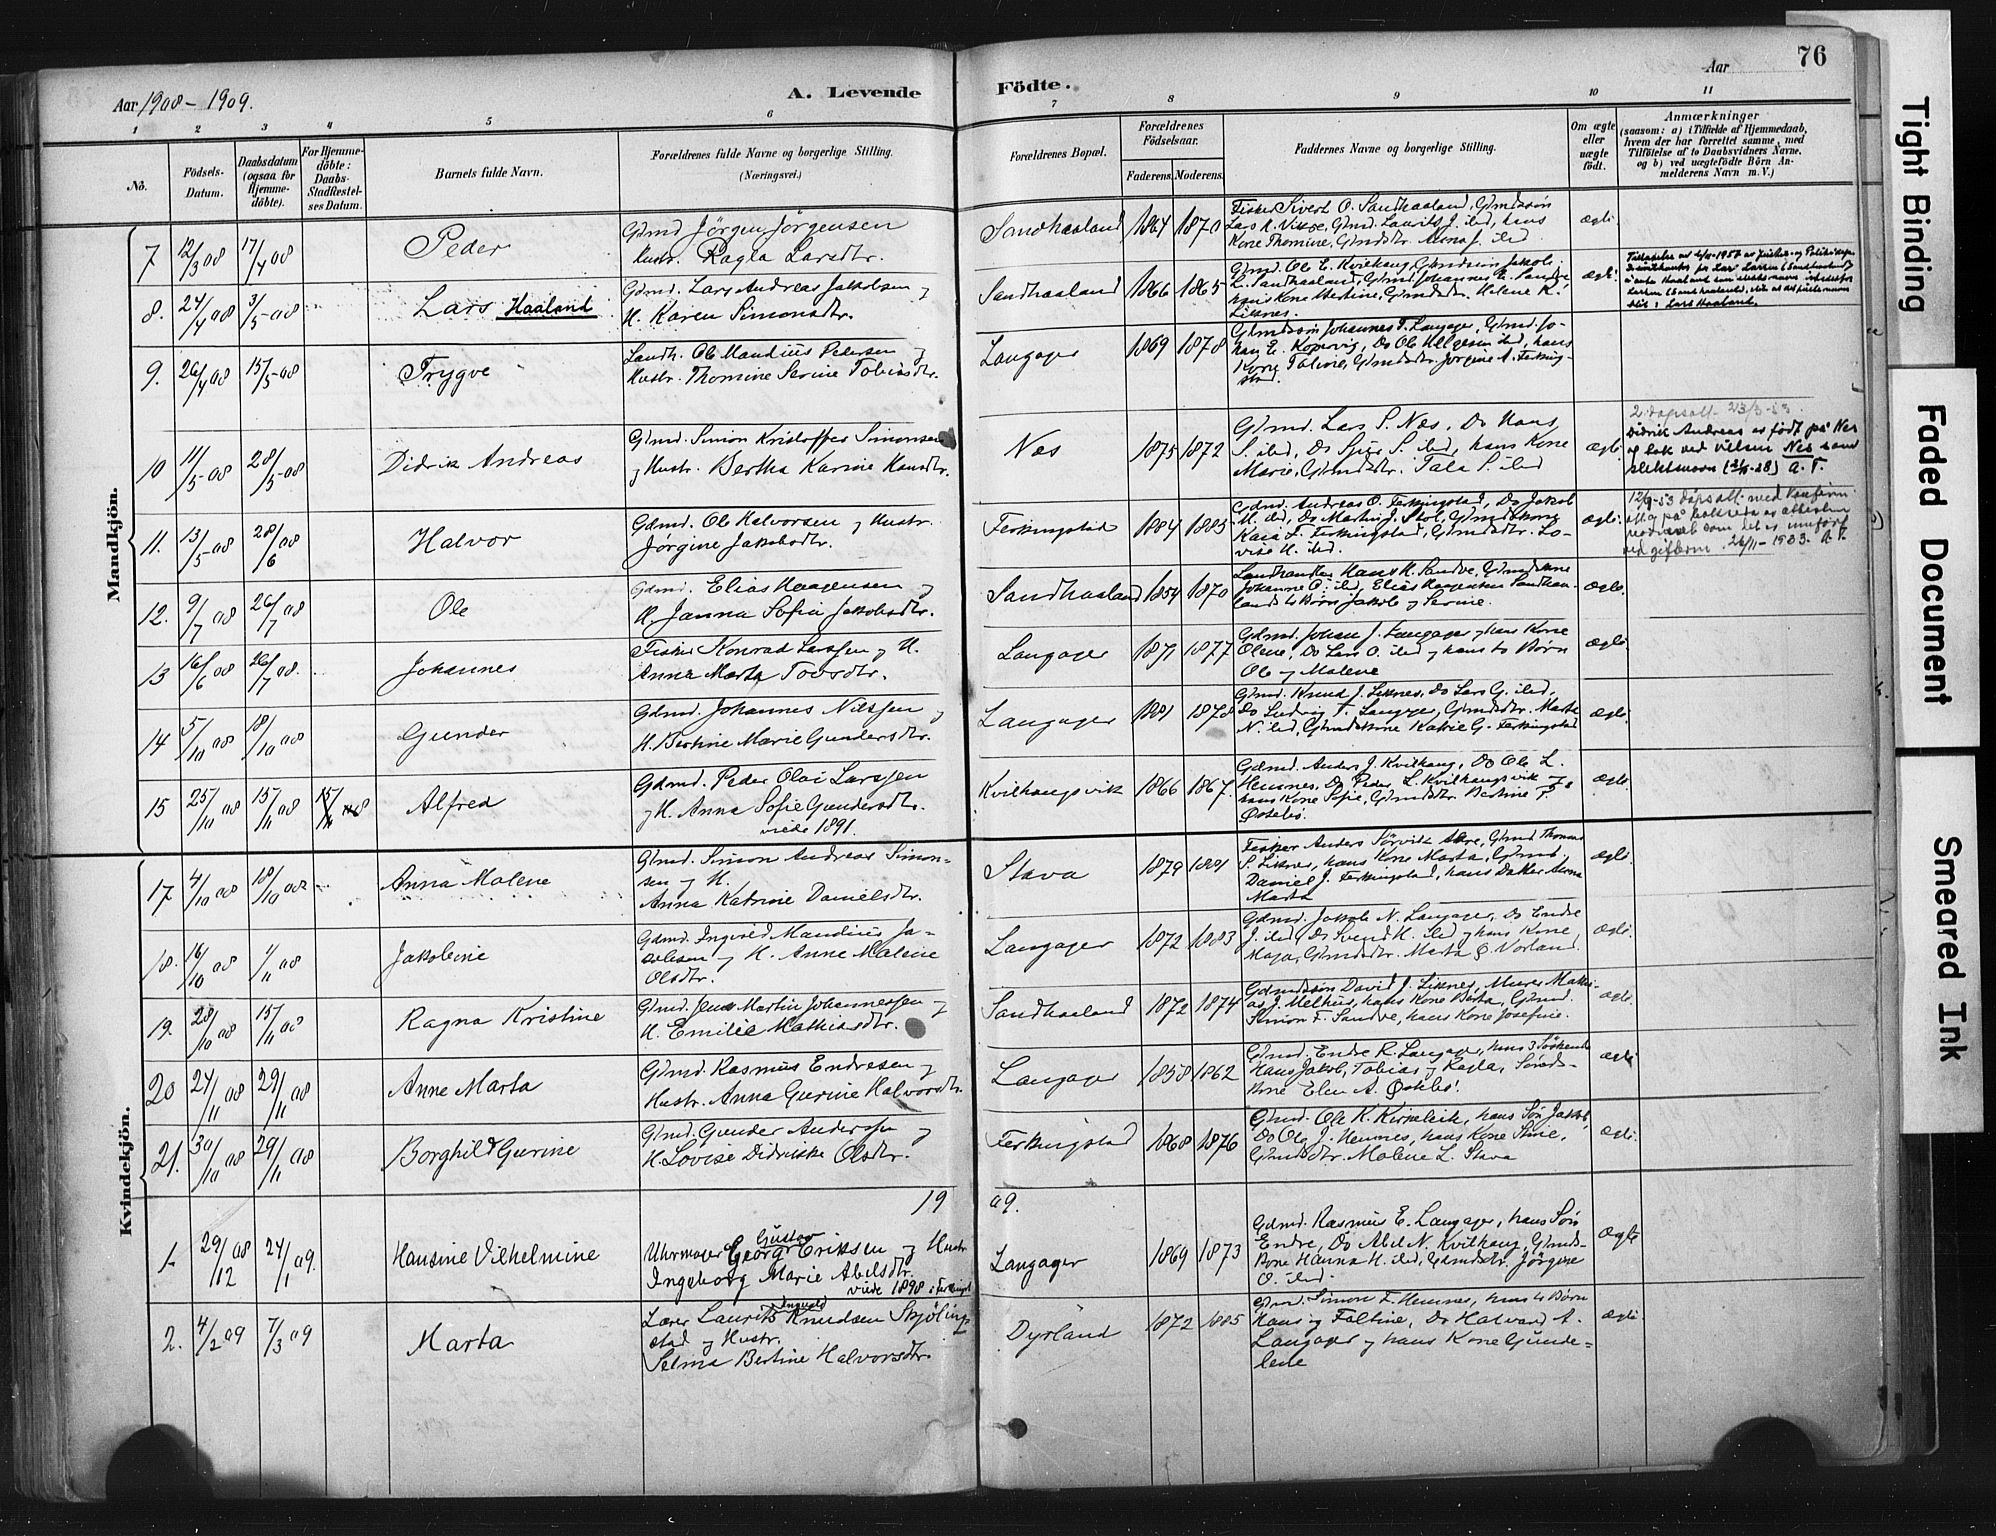 76
Aar 1908 - 1909.
A. Levende
Födte.
Aar
1 2 3 4 5 6 7 8 9 10 11
No.
Födsels-Datum.
Daabsdatum (ogsaa for Hjemmedöbte).
For Hjemmedöbte: Daabs-Stadfæstelses Datum.
Barnets fulde Navn.
Forældrenes fulde Navne og borgerlige Stilling.
(Næringsvei.)
Forældrenes Bopæl.
Forældrenes Födselsaar.
Faderens. Moderens.
Faddernes Navne og borgerlige Stilling.
Om ægte eller uægte födt.
Anmærkninger
(saasom: a) i Tilfælde af Hjemmedaab, hvem der har forrettet samme, med Tilföielse af to Daabsvidners Navne, og b) ved uægtefödte Börn Anmelderens Navn m. V.)
Mandkjön.
7 12/3 08 17/4 08 Peder
Gdmd Jörgen Jörgensen
Hustr. Ragla Larsdtr.
Sandhaaland 1864 1870
Fisker Sivert O. Sandhaaland, Gdmdssön
Lars K. Vikse, Gdmd. Laurits J. ibd, hans
Kone Thomine, Gdmdsdtr. Anna J. ibd.
ægte
8. 24/4 08 3/5 08 Lars Haaland
Gdmd. Lars Andreas Jakobsen og
H. Karen Simonsdtr.
Sandhaaland 1866 1865
Gdmd. Ole E. Kvilhaug, Gdmdssön Jakob
L. Sandhaaland, Gdmd. Johannes E. Sandve,
hans Kone Martine, Gdmdsdtr. Helene K.
Liknes.
ægte
Lars Haaland.
9. 26/4 08 15/5 08 Trygve
Landh. Ole Mandius Petersen og
Hustr. Thomine Serine Tobiasdtr.
Langager 1869 1878
Gdmdssön Johannes T. Langager, Gdmd. Jo-
han E. Kopervig, Do Ole Helgesen ibd, hans
Kone Taline, Gdmdsdtr. Jörgine A. Ferking-
stad.
10 11/5 08 28/5 08 Didrik Andreas
Gdmd. Simon Kristoffer Simonsen
og Hustr. Bertha Karine Hansdtr.
Nes 1875 1872
Gdmd. Lars S. Nes, Do Hans
S. ibd, Do Sjur S. ibd, hans Kone
Marie, Gdmdsdtr. Tala S. ibd
ægte
2. dapsatt. 23/3-53.
Didrik Andreas er født på Nes
og tok ved vielsen Nes som
slektsnavn A. T.
11. 13/5 08 28/6 08 Halvor
Gdmd. Ole Halvorsen og Hustr.
Jörgine Jakobsdtr.
Ferkingstad 1884 1883
Gdmd. Andreas O. Ferkingstad, Do Jakob
H. ibd, Do Martin J. Stol, Gdmdskone
Kaia L. Ferkingstad, Gdmdsdtr. Lo-
vise H. ibd.
ægte
12/9-53 dåpsatt. med
26/11-1933. A. T.
12. 9/7 08 26/7 08 Ole
Gdmd. Elias Haagensen og
H. Janna Sofie Jakobsdtr.
Sandhaaland 1854 1870
Landhandler Hans H. Sandve, Gdmdskone
Johanne O. ibd, Elias Haagensen Sandhaa-
lands to Börn Jakob og Serine.
ægte
13 16/6 08 26/7 08. Johannes
Fisker Konrad Larssen og H.
Anna Marta Torsdtr.
Langager 1871 1877
Gdmd. Johan J. Langager og hans Kone
Olene, Do Lars O. ibd og hans to Börn
Ole og Malene
ægte
14 5/10 08 18/10 08 Gunder
Gdmd. Johannes Nilssen og
H. Bertine Marie Gundersdtr.
Langager 1881 1878
Gdmd. Knud J. Liknes, Do Lars G. ibd,
Do Ludvig T. Langager, Gdmdsdtr. Marta
N. ibd, Gdmdskone Kathrie G. Ferkingstad
ægte
15 25/10 08 15/11 08 15/11 08 Alfred
Gdmd. Peder Olai Larssen
og H. Anna Sofie Gundersdtr.
viede 1891.
Kvilhaugsvik 1866 1867.
Gdmd. Anders J. Kvilhaug, Do Ole L.
Hemnes, Do Peder L. Kvilhaugsvik og
hans Kone Sofie, Gdmdsdtr. Bertine T.
Östebö.
ægte
Kvindekjön.
17 4/10 08 18/10 08 Anna Malene
Gdmd. Simon Andreas Simon-
sen og H.
Anna Katrine Danielsdtr.
Stava 1879 1881
Fisker Anders Sörvik Akre, Gdmd Thomas
S. Liknes, hans Kone Marta, Gdmd.
Daniel J. Ferkingstad, hans Datter Anna
Marta
ægte
18. 16/10 08 1/11 08 Jakobine
Gdmd. Ingvald Mandius Ja-
kobsen og H. Anne Malene
Olsdtr.
Langager 1872 1883
Gdmd. Jakob N. Langager, Do Endre
J. ibd, Do Svend H. ibd og hans Kone
Maja, Gdmdsdtr. Marta G. Norland.
ægte
19. 28/10 08 15/11 08 Ragna Kristine
Gdmd. Jens Martin Johannessen og
H. Emilie Mathiasdtr.
Sandhaaland 1872 1874
Gdmdssön David J. Liknes, Murer Mathi-
as J. Melhus, hans Kone Berta, Gdmd.
Simon F. Sandve, hans Kone Josefine.
ægte
20 24/11 08 29/11 08 Anne Marta
Gdmd. Rasmus Endresen og
Hustr. Anna Gurine Halvorsdtr.
Langager 1858 1862
Gdmd. Endre R. Langager, hans 3 Söskende
Hans Jakob, Tobias og Ragla, Smeds-
kone Elen A. Östebö.
ægte
21. 30/10 08 29/11 08 Borghild Gurine
Gdmd. Gunder Anderssen og
H. Lovise Didrikke Olsdtr.
Ferkingstad 1868 1876
Gdmd. Ole K. Kirkeleite, hans Sön Jakob,
Do Ola J. Hemnes, hans Kone Stine,
Gdmdsdtr. Malene L. Stava
ægte
19 09.
1. 29/12 08 24/1 09. Hansine Vilhelmine
Uhrmager Georg Gustav Eriksen og Hustr
Ingeborg Marie Abelsdtr.
viede 1898 i Ferkingst
Langager 1869 1873
Gdmd. Rasmus E. Langager, hans Sön
Endre, Do Abel N. Kvilhaug, Gdmds-
kone Hanna H. ibd, Gdmdsdtr. Jörgine
O. ibd.
ægte
2. 4/2 09 7/3 09 Marta
Lærer Laurits Ingvald Knudsen Skjöling-
stad og Hustr.
Selma Bertine Halvorsdtr.
Dyrland 1872 1885
Gdmd. Simon F. Hemnes, hans to Börn
Hans og Taltine, Do Halvard A.
Langager og hans Kone Gunde-
lede
ægte
Tight Binding
Faded Document
Smeared Ink